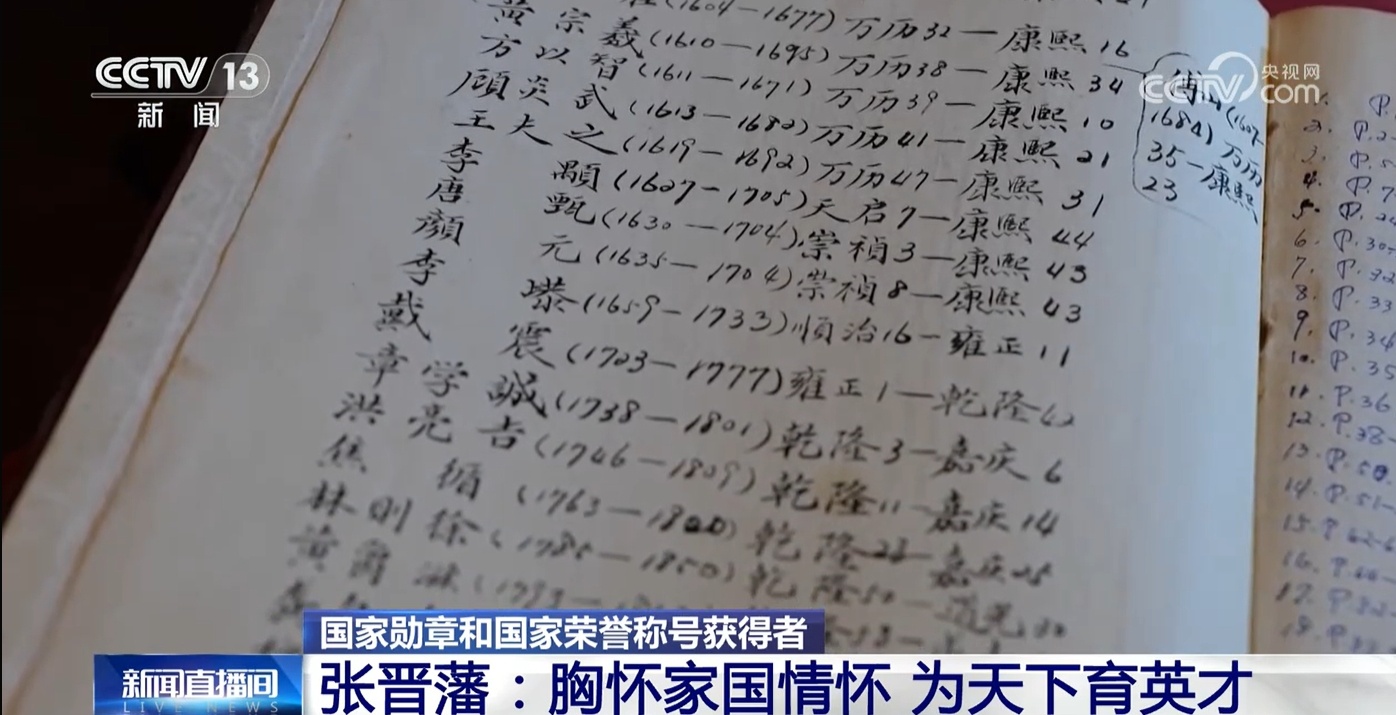 (1604—1677)万历32—康熙16
黄宗羲(1610—1695)万历38—康熙34
方以智(1611—1671)万历39—康熙10
顾炎武(1613—1682)万历41—康熙21
王夫之(1619—1692)万历47—康熙31
李顒(1627—1705)天启7—康熙44
唐甄(1630—1704)崇禎3—康熙43
顔元(1635—1704)崇禎8—康熙43
李塨(1659—1733)順治16—雍正11
戴震(1723—1777)雍正1—乾隆42
章学誠(1738—1801)乾隆3—嘉庆6
洪亮吉(1746—1809)乾隆11—嘉庆14
焦循(1763—1820)乾隆28—嘉庆25
林则徐(1785—1850)乾隆50—道光30
黄爵滋(1793—
傅山(1607—
1684)万历
35—康熙
23
P.
2. P.2
3. P.5
4. P.7
5. P.2
6. P.30
7. P.32
8. P.33
9. P.34
10. P.35
11. P.36
12. P.38
13. P.50
14. P.51-
15. P.62-6
16. P.
17. P.
18. P.
CCTV 13
新闻
CCTV 央视网
com
国家勋章和国家荣誉称号获得者
新闻直播间
LIVE NEWS
张晋藩：胸怀家国情怀 为天下育英才